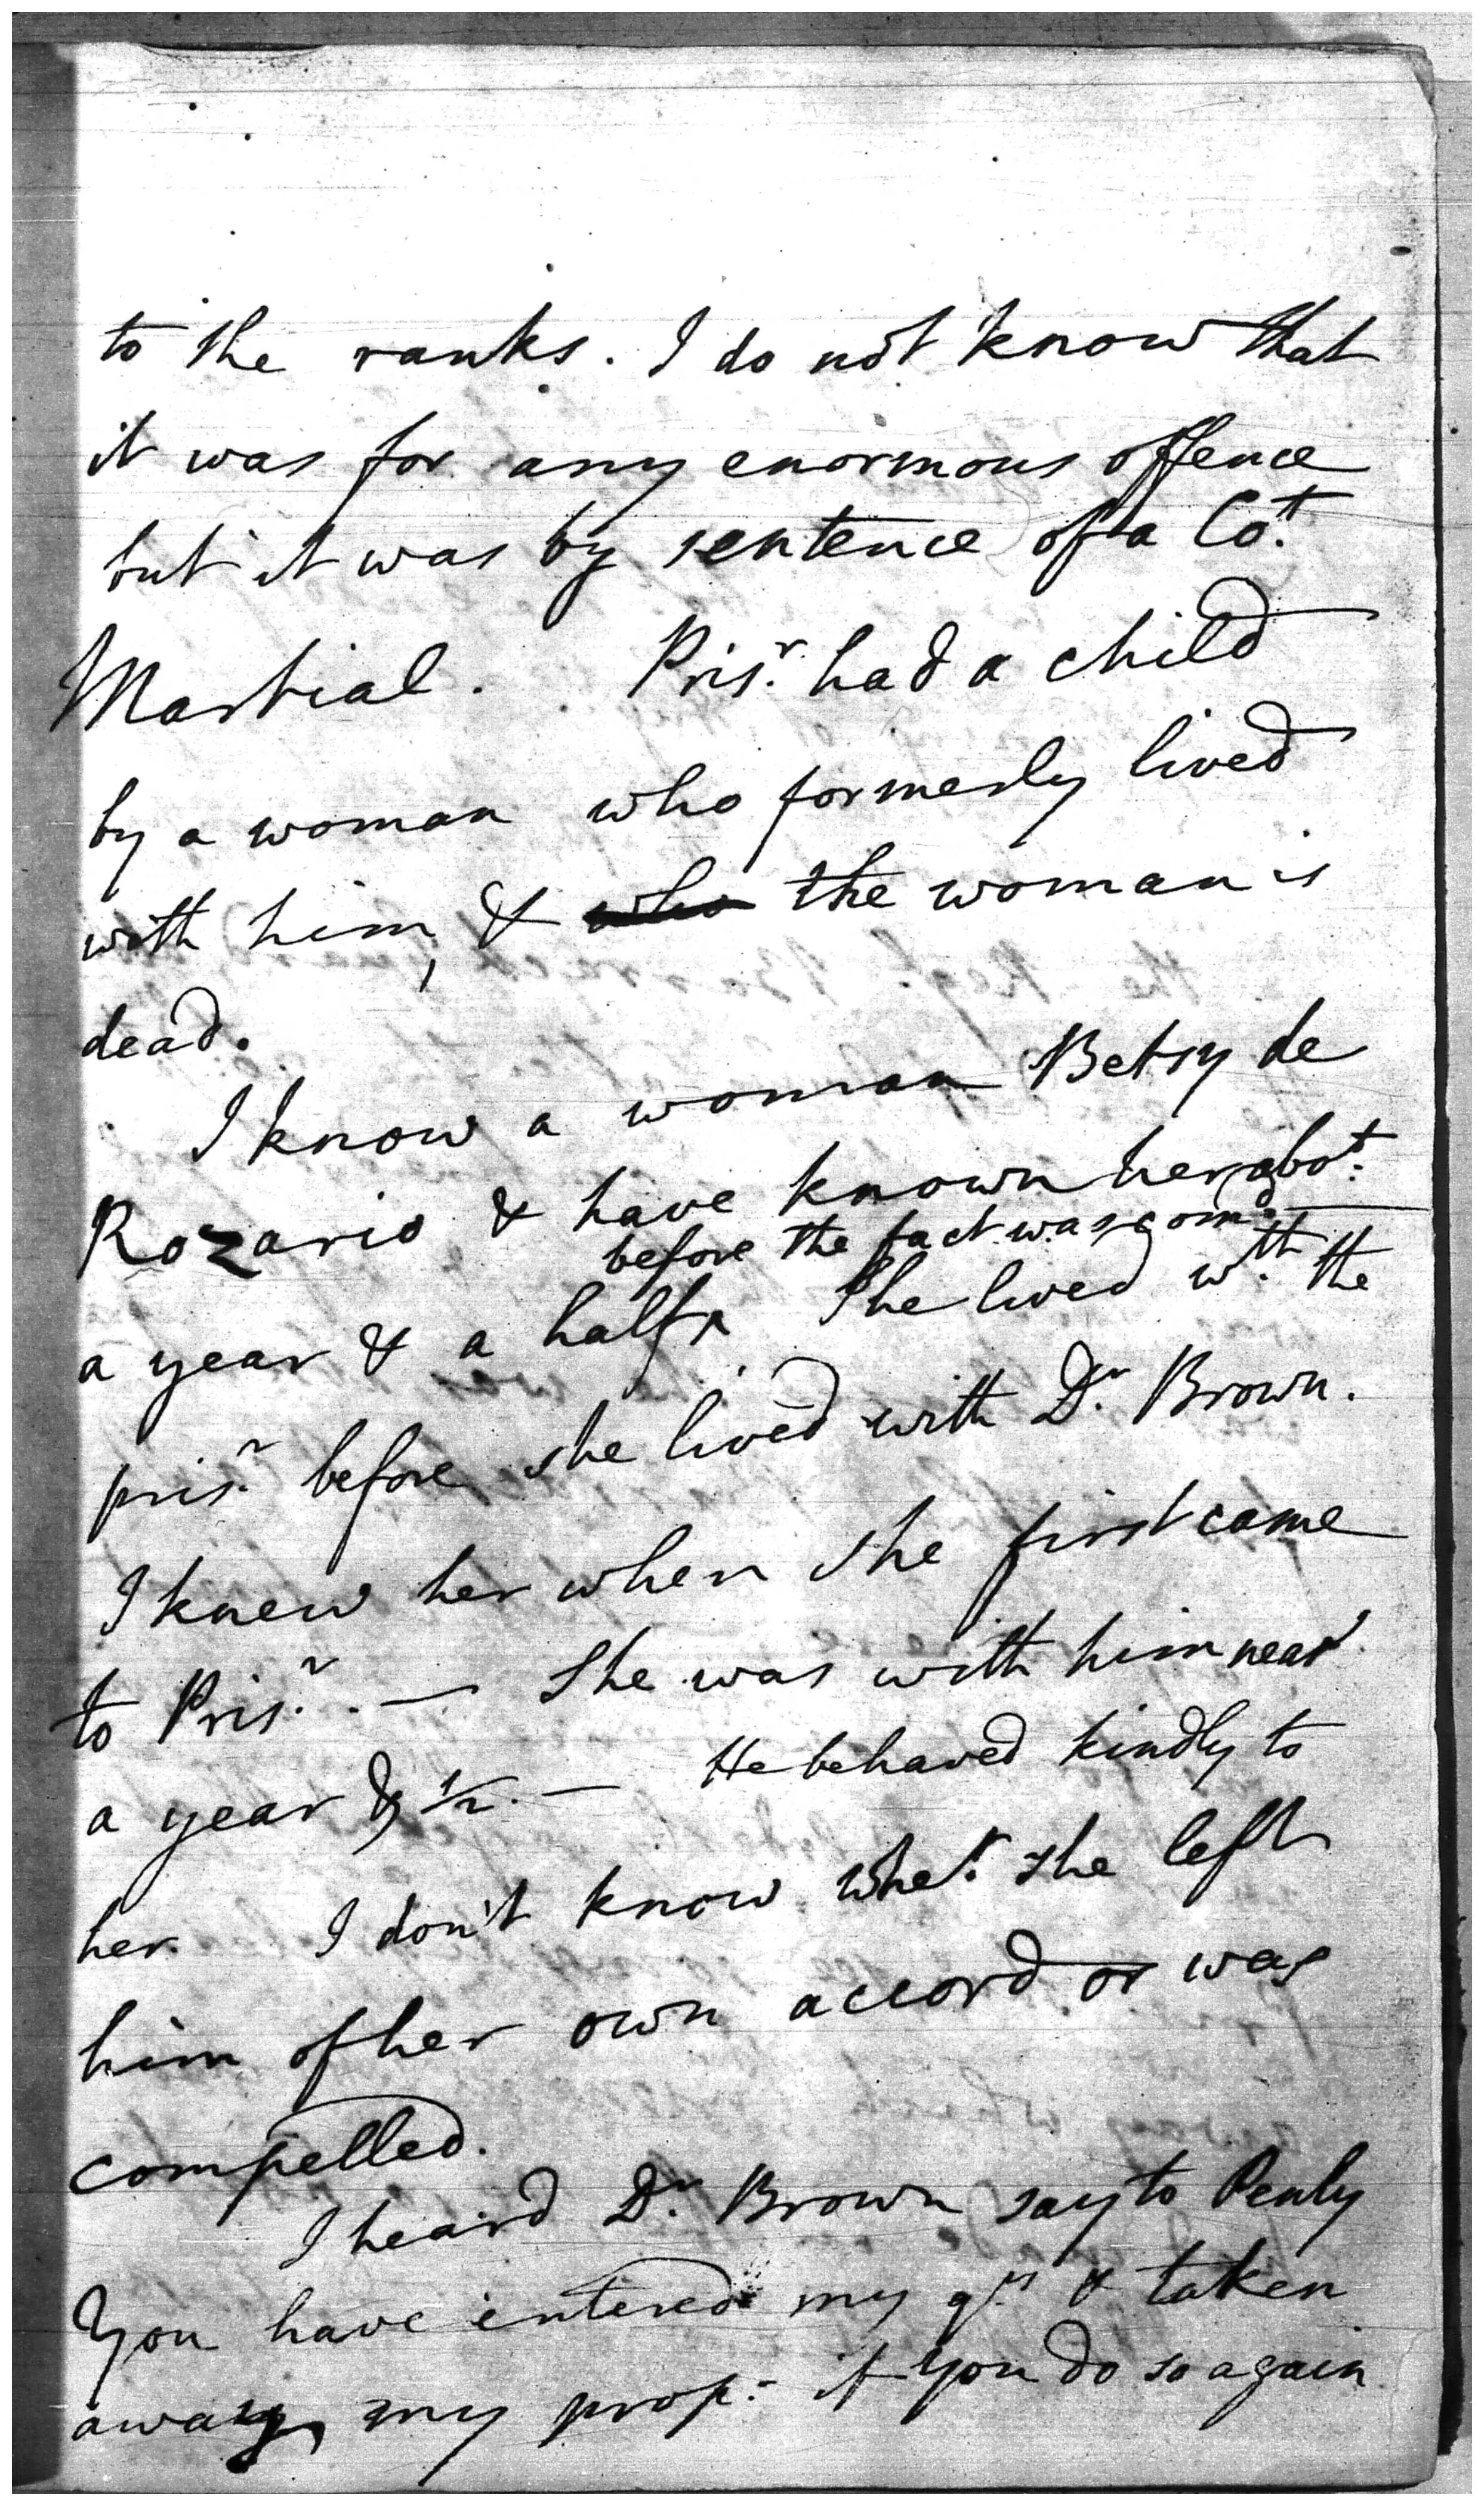 to the ranks. I do not know that
it was for any enormous offence
but it was by sentence of a Cot.
Martial. Prisr. had a child
by a woman who formerly lived
with him, & who the woman is
dead.
I know a woman Betsy de
Rozario & have known her abot.
before the fact was comd.
a year & a half ‸ She lived wth. the
prisr. before she lived with Dr. Brown.
I knew her when she first came
to Prisr. — She was with him near
a year & 1/2. — He behaved kindly to
her I don't know wher. she left
him of her own accord or was
compelled.
I heard Dr. Brown say to Penly
You have entered my qrs. & taken
away my prop: if you do so again